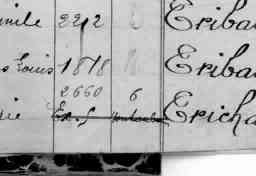 mile 2212 Eriba
Louis 1818 Eriba
2660 6
ie Ex. f Ericha